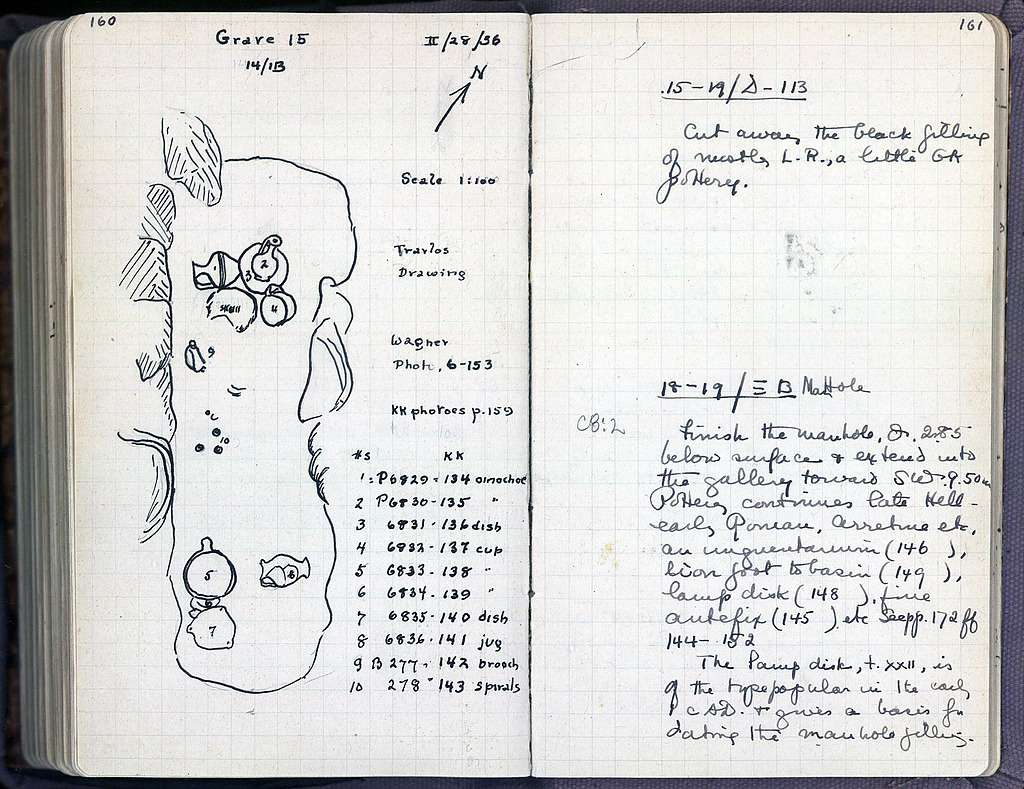 160
Grave 15
II/28/36
14/1B
N
Scale 1:100
Travlos
Drawing
1
2
3
Skull
4
9
Wagner
Photo, 6-153
KK photoes p.159
10
#s KK
1: P6829 - 134 oinochoe
2 P6830 - 135 "
3 6831 - 136 dish
4 6832 - 137 cup
5 6833 - 138 "
6 6834 - 139 "
7 6835 - 140 dish
8 6836 - 141 jug
9 B 277 - 142 brooch
10 278 - 143 spirals
5
6
8
7
161
15-19/Δ-113
Cut away the black filling
of mostly L.R., a little GK
pottery.
18-19/Ξ B Manhole
C8:2
Finish the manhole, D. 2.85
below surface & extend into
the gallery toward SW-9.50m
Pottery continues late Hell-
early Roman, Arretine etc,
an unguentarium (146 ),
lion foot to basin (149 ),
lamp disk (148 ), fine
antefix (145 ) etc See pp. 172 ff
144-152
The lamp disk, t. XXII, is
of the type popular in the early
I c AD. & gives a basis for
dating the manhole filling.